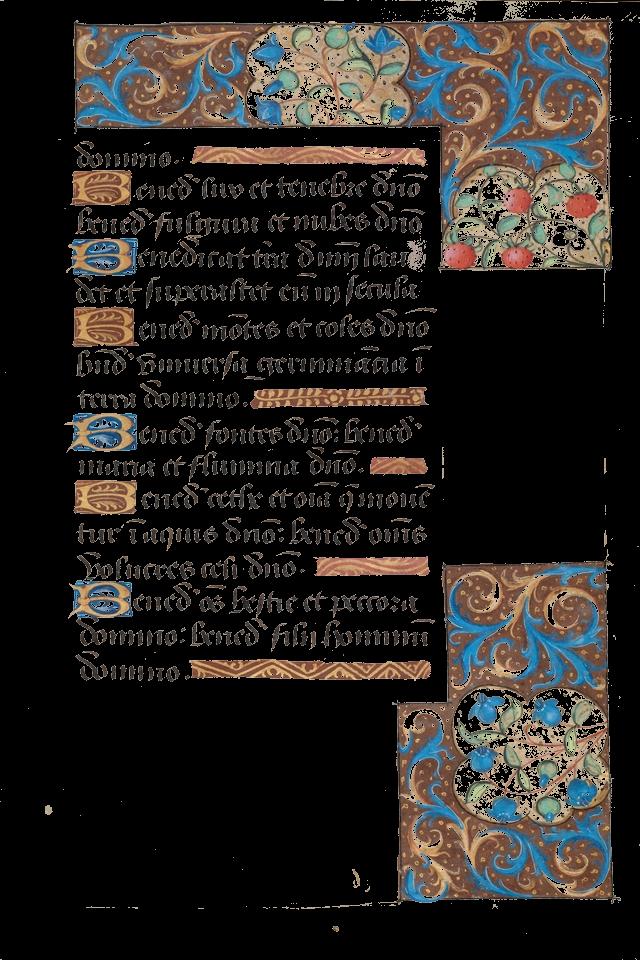 domino.
Bened' lux et tenebre dño
bened' fulgura et nubes dño
Benedicat tr̃a dñm̃ lau
det et superexaltet eũ in secula
Bened' mõtes et coles dño
bñd' vniuersa germinãcia ĩ
terra domino.
Bened' fontes dño: bened'
maria et flumina dño.
Bened' cethe et oĩa q̃ mouẽ
tur ĩ aquis dño: bened' oẽs
volucres celi dño.
Bened' oẽs bestie et peccora
domino: bened' filij hominũ
domino.